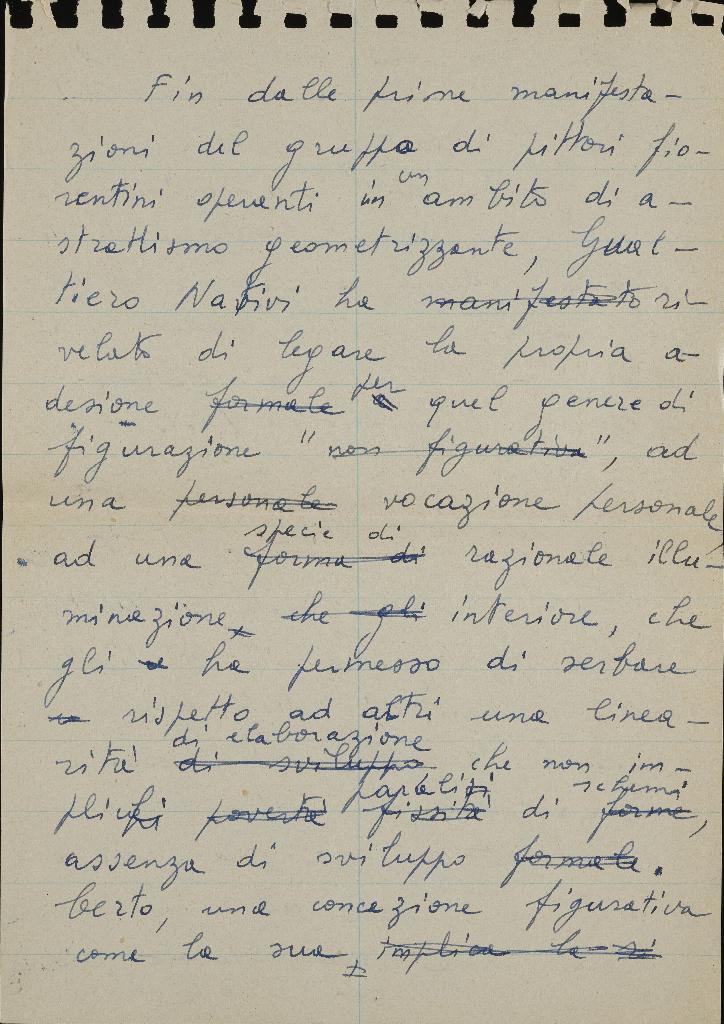 Fin dalle prime manifesta-
zioni del gruppo di pittori fio-
rentini operanti in un ambito di a-
strattismo geometrizzante, Gual-
tiero Nativi ha manifestato ri-
velato di legare la propria a-
desione formale per quel genere di
figurazione "non figurativa", ad
una personale vocazione personale
specie di
ad una forma di razionale illu-
minazione, che gli interiore, che
gli ha permesso di serbare
rispetto ad altri una linea-
di elaborazione
rità di sviluppo che non im-
paralisi schemi
plichi povertà fissità di forme,
assenza di sviluppo formale.
Certo, una concezione figurativa
come la sua, implica la si